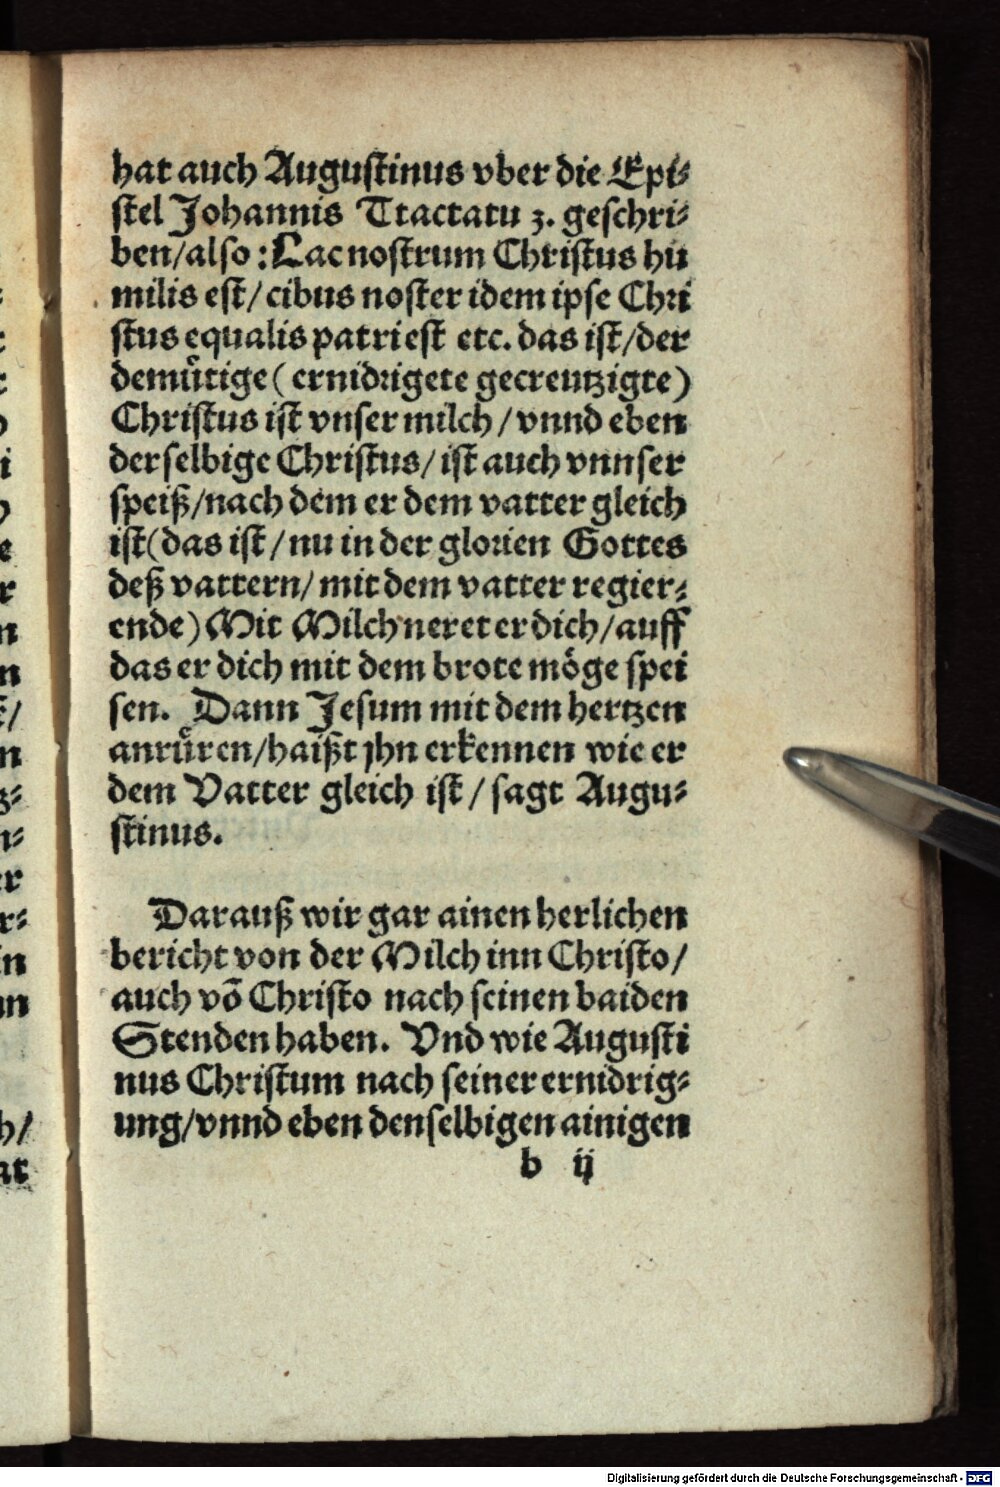 hat auch Augustinus vber die Epi⸗
stel Johannis Ttactatu 3. geschri⸗
ben/also: Lac nostrum Christus hu
milis est/ cibus noster idem ipse Chri
stus equalis patri est etc. das ist/der
demuͤtige (ernidrigete gecreutzigte)
Christus ist vnser milch/vnnd eben
derselbige Christus/ ist auch vnnser
speiß/nach dem er dem vatter gleich
ist(das ist/nu in der glorien Gottes
deß vattern/ mit dem vatter regier⸗
ende) Mit Milch neret er dich/auff
das er dich mit dem brote möge spei
sen. Dann Jesum mit dem hertzen
anruͤren/haißt jhn erkennen wie er
dem Vatter gleich ist/ sagt Augu⸗
stinus.
Darauß wir gar ainen herlichen
bericht von der Milch inn Christo/
auch võ Christo nach seinen baiden
Stenden haben. Vnd wie Augusti
nus Christum nach seiner ernidrig⸗
ung/vnnd eben denselbigen ainigen
b ij
Digitalisierung gefördert durch die Deutsche Forschungsgemeinschaft - DFG